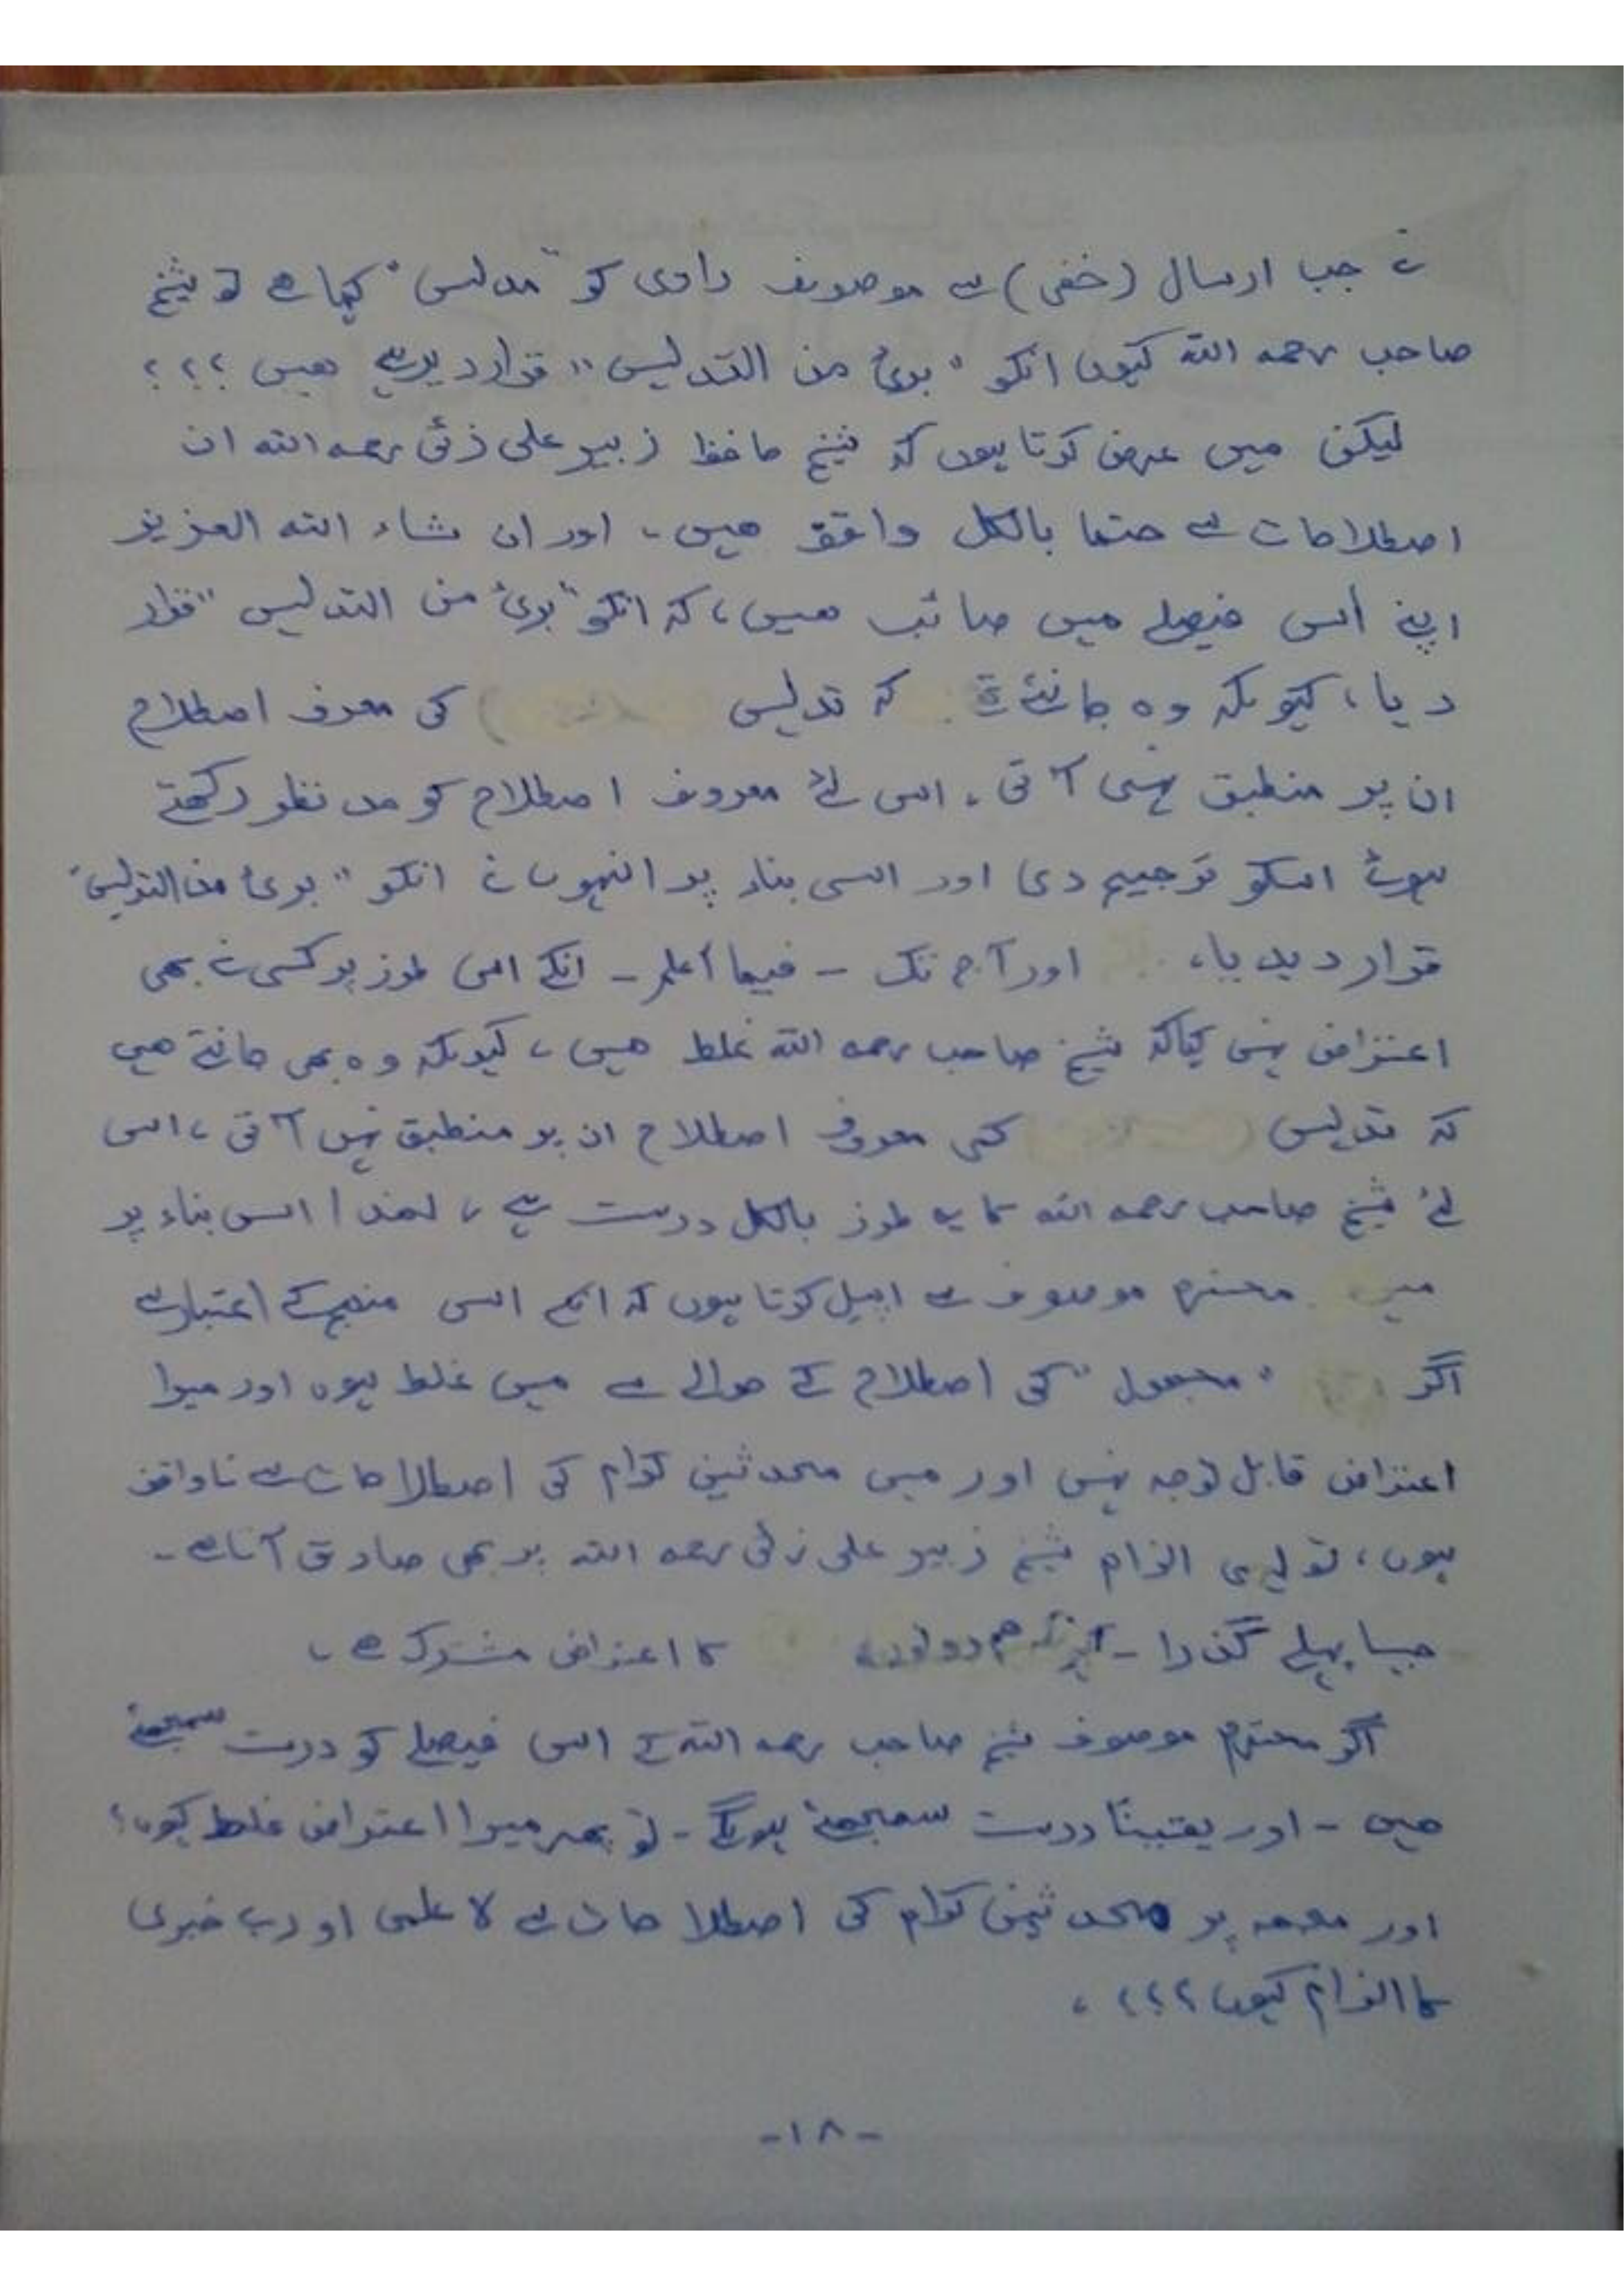 نے جب ارسال (خفی) سے موصوف راوی کو "مدلس" کہا ہے تو شیخ
صاحب رحمہ اللہ کیوں انکو "بریٔ من التدلیس" قرار دیرہے ھیں ؟؟؟
لیکن میں عرض کرتا ہوں کہ شیخ حافظ زبیر علی زئی رحمہ اللہ ان
اصطلاحات سے حتما بالکل واقف ھیں، اور ان شاء اللہ العزیز
اپنے اُس فیصلے میں صائب ھیں، کہ انکو "بریٔ من التدلیس" قرار
دیا، کیونکہ وہ جانتے تھے کہ تدلیس کی معرف اصطلاح
ان پر منطبق نہیں آتی، اس لئے معروف اصطلاح کو مد نظر رکھتے
ہوئے اسکو ترجیح دی اور اسی بناء پر انہوں نے انکو "بریٔ من التدلیس"
قرار دیدیا، اور آج تک - فیما أعلم - انکے اس طرز پر کسی نے بھی
اعتراض نہیں کیا کہ شیخ صاحب رحمہ اللہ غلط ھیں، کیونکہ وہ بھی جانتے ھیں
کہ تدلیس کی معروف اصطلاح ان پر منطبق نہیں آتی، اس
لئے شیخ صاحب رحمہ اللہ کا یہ طرز بالکل درست ہے، لھذا اس بناء پر
میں محترم موصوف سے اپیل کرتا ہوں کہ انکے اس منھج کے اعتبار سے
اگر "مجھول" کی اصطلاح کے حوالے سے میں غلط ہوں اور میرا
اعتراض قابل توجہ نہیں اور میں محدثین کرام کی اصطلاحات سے ناواقف
ہوں، تو یہی الزام شیخ زبیر علی زئی رحمہ اللہ پر بھی صادق آتا ہے۔
جیسا پہلے گذرا - کیونکہ ہم دونوں کا اعتراض مشترک ہے،
اگر محترم موصوف شیخ صاحب رحمہ اللہ کے اس فیصلے کو درست سمجھتے
ھیں - اور یقیناً درست سمجھتے ہونگے - تو پھر میرا اعتراض غلط کیوں؟
اور مجھ پر محدثین کرام کی اصطلاحات سے لاعلمی اور بے خبری
کا الزام کیوں ؟؟؟،
-۱۸-